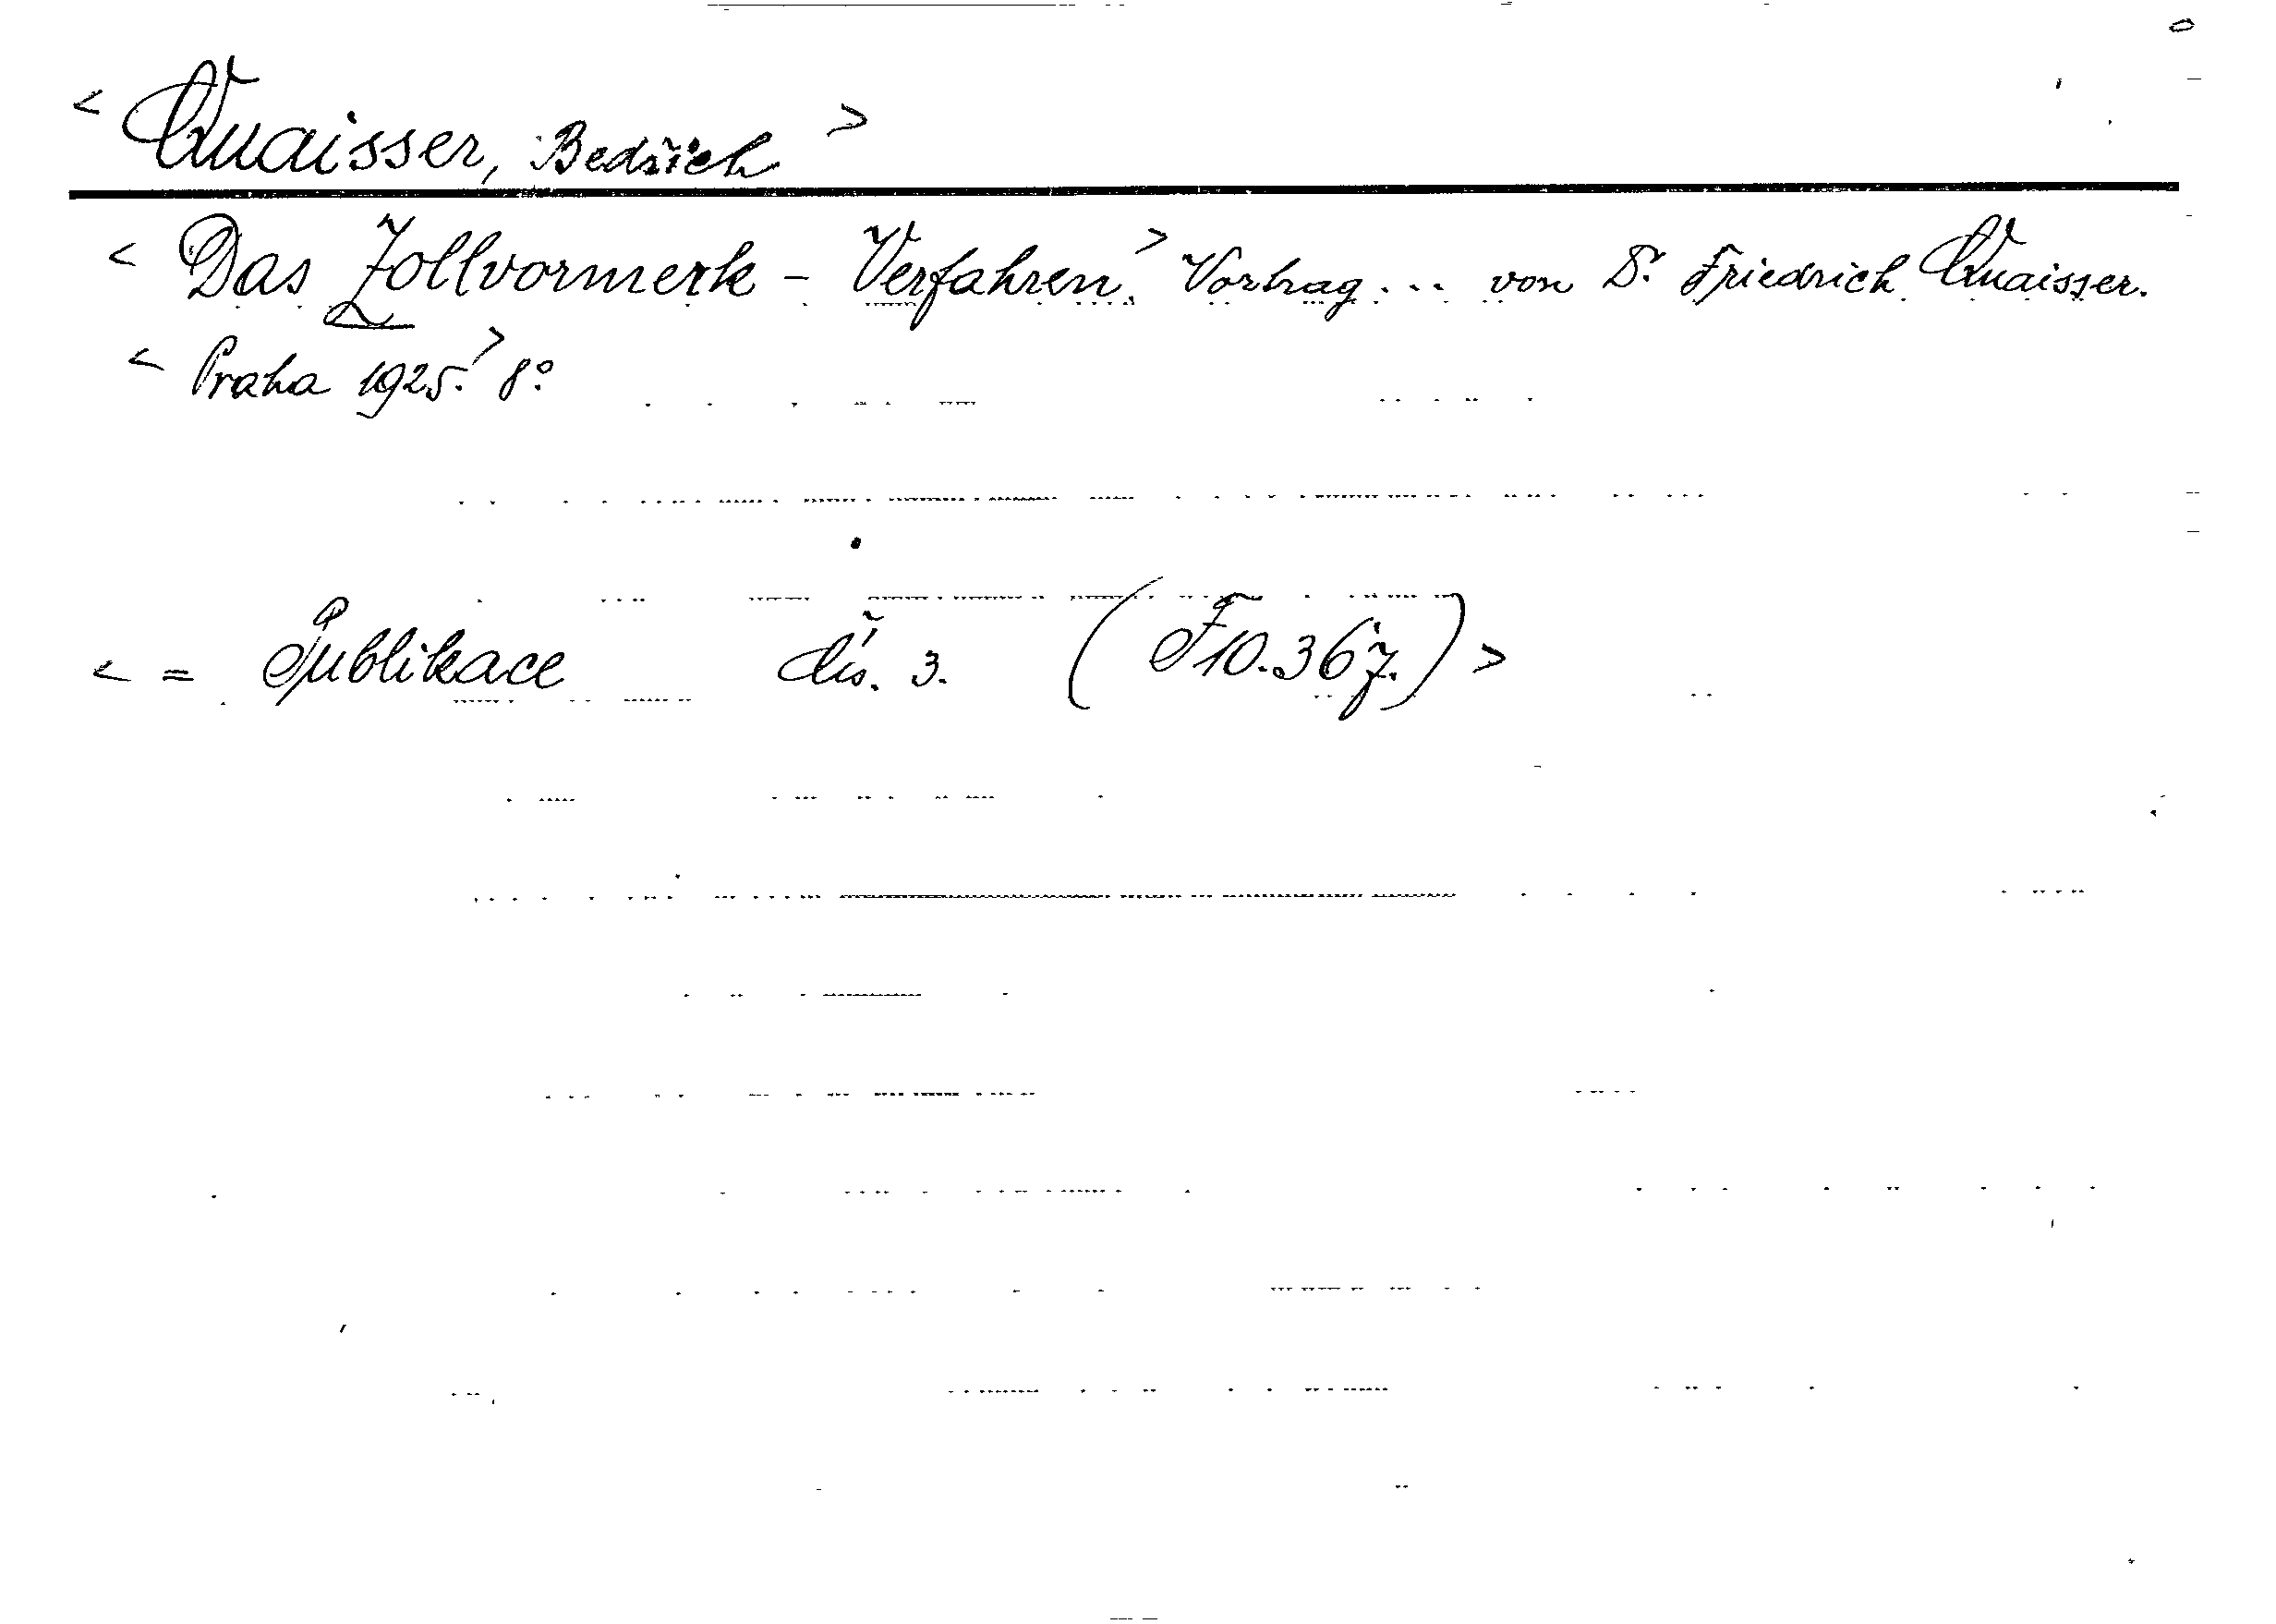 < Quaisser, Bedřich >
< Das Zollvormerk - Verfahren.> Vortrag... von Dr. Friedrich Quaisser.
< Praha 1925.> 8°.
< = Publikace čís. 3. (F10.367.) >